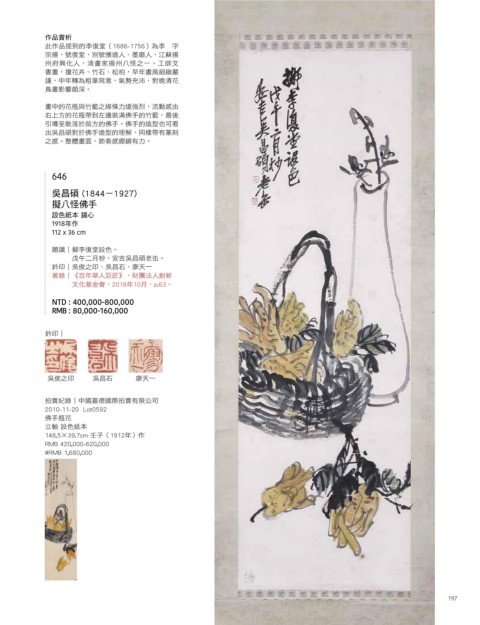 作品賞析
此作品提到的李復堂（1686-1756）為李　字
宗楊，號復堂，別號懊道人、墨磨人，江蘇楊
州府興化人，清畫家揚州八怪之一。工詩文
書畫，擅花卉、竹石、松柏，早年畫風細緻嚴
謹，中年轉為粗筆寫意，氣勢充沛，對晚清花
鳥畫影響頗深。
畫中的花瓶與竹籃之線條力道強烈，流動感由
右上方的花瓶帶到左邊裝滿佛手的竹籃，最後
引導至散落於前方的佛手。佛手的造型也可看
出吳昌碩對於佛手造型的理解，同樣帶有篆刻
之感，整體畫面，節奏感鏗鏘有力。
646
吳昌碩（1844－1927）
擬八怪佛手
設色紙本 鏡心
1918年作
112 x 36 cm
題識｜擬李復堂設色。
戊午二月杪，安吉吳昌碩老缶。
鈐印｜吳俊之印、吳昌石、廖天一
著錄｜《百年華人巨匠》，財團法人創新
文化基金會，2018年10月，p.63。
NTD : 400,000-800,000
RMB : 80,000-160,000
鈐印｜
吳俊之印
吳昌石
廖天一
拍賣紀錄｜中國嘉德國際拍賣有限公司
2010-11-20　Lot0592
佛手瓶花
立軸 設色紙本
148.5×39.7cm 壬子（1912年）作
RMB 420,000-620,000
#RMB 1,680,000
擬李復堂設色
戊午二月杪
安吉吳昌碩老缶
197